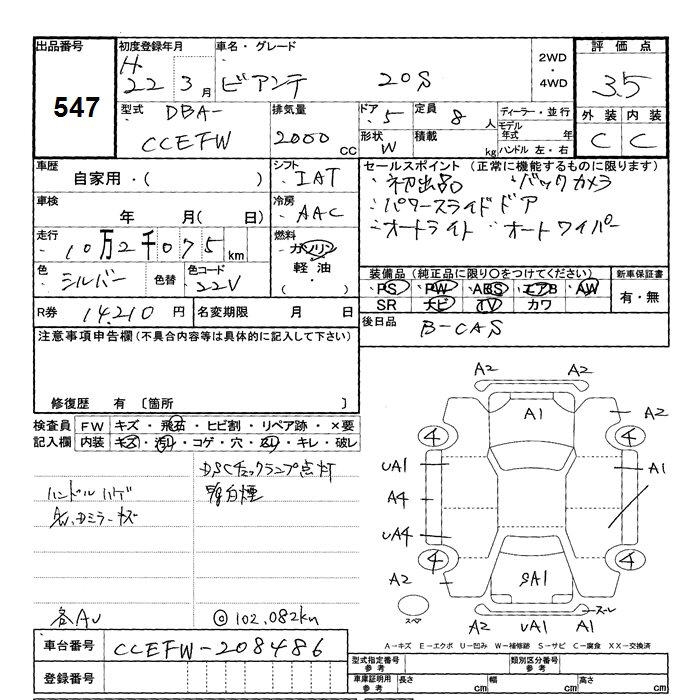 出品番号
547
初度登録年月
H.
22 3月
車名・グレード
ビアンテ 20S
2WD
4WD
評価点
3.5
外装 内装
C C
型式 DBA-
CCEFW
排気量
2000 CC
ドア 5
形状 W
定員 8人
積載 kg
ディーラー・並行
モデル年式 年
ハンドル 左・右
車歴
自家用・( )
車検
年 月( 日)
シフト
IAT
冷房
AAC
燃料
ガソリン
軽油・
( )
走行
10万2千075km
色 シルバー 色替
色コード 22V
R券 14,210円
名変期限 月 日
セールスポイント(正常に機能するものに限ります)
・初出品 ・バックカメラ
・パワースライドドア
・オートライト・オートワイパー
装備品(純正品に限り○をつけてください)
PS・PW・ABS・エアB・AW
SR ナビ・TV・カワ
新車保証書
有・無
後日品 B-CAS
注意事項申告欄(不具合内容等は具体的に記入して下さい)
修復歴 有〔箇所 〕
検査員記入欄
FW キズ・飛石・ヒビ割・リペア跡・×要
内装 キズ・汚れ・コゲ・穴・スレ・キレ・破レ
DSCチェックランプ点灯
ハンドルハゲ
白煙
◎102,082km
車台番号 CCEFW-208486
登録番号
A2 A2
A1
A2
4 4
UA1
A1
A4
UA4
4 4
A2
9A1
スペア
A2 UA1 A1
A―キズ E―エクボ U―凹み W―補修跡 S―サビ C―腐食 XX―交換済
型式指定番号 参考
類別区分番号 参考
車庫証明用 参考
長さ cm
幅 cm
高さ cm